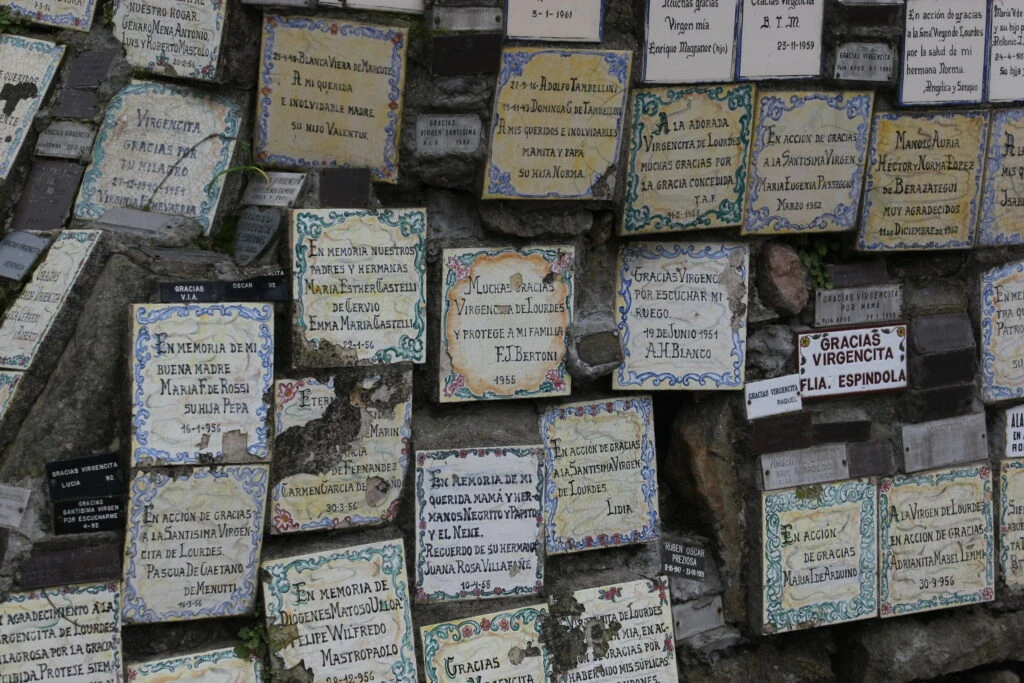 NUESTRO HOGAR
GENARO MENA ANTONIO,
LUIS Y ROBERTO MASCOLO
20-2-56
3-1-1961
Muchas gracias
Virgen mía
Enrique Magraner (hijo)
Gracias Virgen
B. T. M.
23-11-1959
GRACIAS
VIRGENCITA
En acción de gracias
a la Sma Virgen de Lourdes
por la salud de mi
hermana Norma.
Angélica y Serapio
QUERIDAS
VIRGENCITA
GRACIAS POR
TU MILAGRO
27-12-1946-1954
VIRGINIA ECHEVARRIA
BLANCA VIERA DE MARCOTE
A MI QUERIDA
E INOLVIDABLE MADRE
SU HIJO VALENTIN.
GRACIAS
VIRGEN SANTISIMA
27-9-16 ADOLFO TAMBELLINI
19-11-43 DOMINGA G. DE TAMBELLINI
A MIS QUERIDOS E INOLVIDABLES
MAMITA Y PAPA
SU HIJA NORMA.
A LA ADORADA
VIRGENCITA DE LOURDES
MUCHAS GRACIAS POR
LA GRACIA CONCEDIDA.
T.A.F.
EN ACCION DE GRACIAS
A LA SANTISIMA VIRGEN
MARIA EUGENIA PASSEGGI
MARZO 1952
MANOEL AURIA
HECTOR-NORMA LOPEZ
DE BERAZATEGUI
MUY AGRADECIDOS
11 DE DICIEMBRE DE 1953
EN MEMORIA NUESTROS
PADRES Y HERMANAS
MARIA ESTHER CASTELLI
DE CERVIO
EMMA MARIA CASTELLI
22-1-56
MUCHAS GRACIAS
VIRGENCITA DE LOURDES
Y PROTEGE A MI FAMILIA
F.J. BERTONI
1956
GRACIAS VIRGENC
POR ESCUCHAR MI
RUEGO.
19 DE JUNIO 1954
A.H. BIANCO
GRACIAS VIRGENCITA
POR MAMÁ
GRACIAS
VIRGENCITA
FLIA. ESPINDOLA
GRACIAS VIRGENCITA
RAQUEL
GRACIAS
V.I.A.
OSCAR 93
EN MEMORIA DE MI
BUENA MADRE
MARIA F. DE ROSSI
SU HIJA PEPA
16-1-956
ETER
MARIN
GRACIA
DE FERNANDEZ
CARMEN GARCIA DE
30-3-56
GRACIAS VIRGENCITA
LUCIA 92
GRACIAS
SANTISIMA VIRGEN
POR ESCUCHARME
4-92
EN ACCION DE GRACIAS
A LA SANTISIMA VIRGEN-
CITA DE LOURDES.
PASCUA DE GAETANO
DE MENUTTI
16-3-56
EN MEMORIA DE MI
QUERIDA MAMÁ Y HER-
MANOS NEGRITO Y PAPITO
Y EL NENE.
RECUERDO DE SU HERMANA
JUANA ROSA VILLAFAÑE
10-1-68
EN ACCION DE GRACIAS
A LA SANTISIMA VIRGEN
DE LOURDES.
LIDIA
RUBEN OSCAR
PREZIOSA
EN ACCIÓN
DE GRACIAS
MARIA I. DE ARDUINO
A LA VIRGEN DE LOURDES
EN ACCION DE GRACIAS
ADRIANITA MABEL LEMMA
30-9-956
AGRADECIMIENTO A LA
VIRGENCITA DE LOURDES
MILAGROSA POR LA GRACIA
PROTEJE SIEM
EN MEMORIA DE
DIOGENES MATOSO ULLOA
FELIPE WILFREDO
MASTROPAOLO
20-12-956
GRACIAS
VIRGENCITA
DE LOURDES
MIA, EN AC-
DE GRACIAS POR
HABER OIDO MIS SÚPLICAS